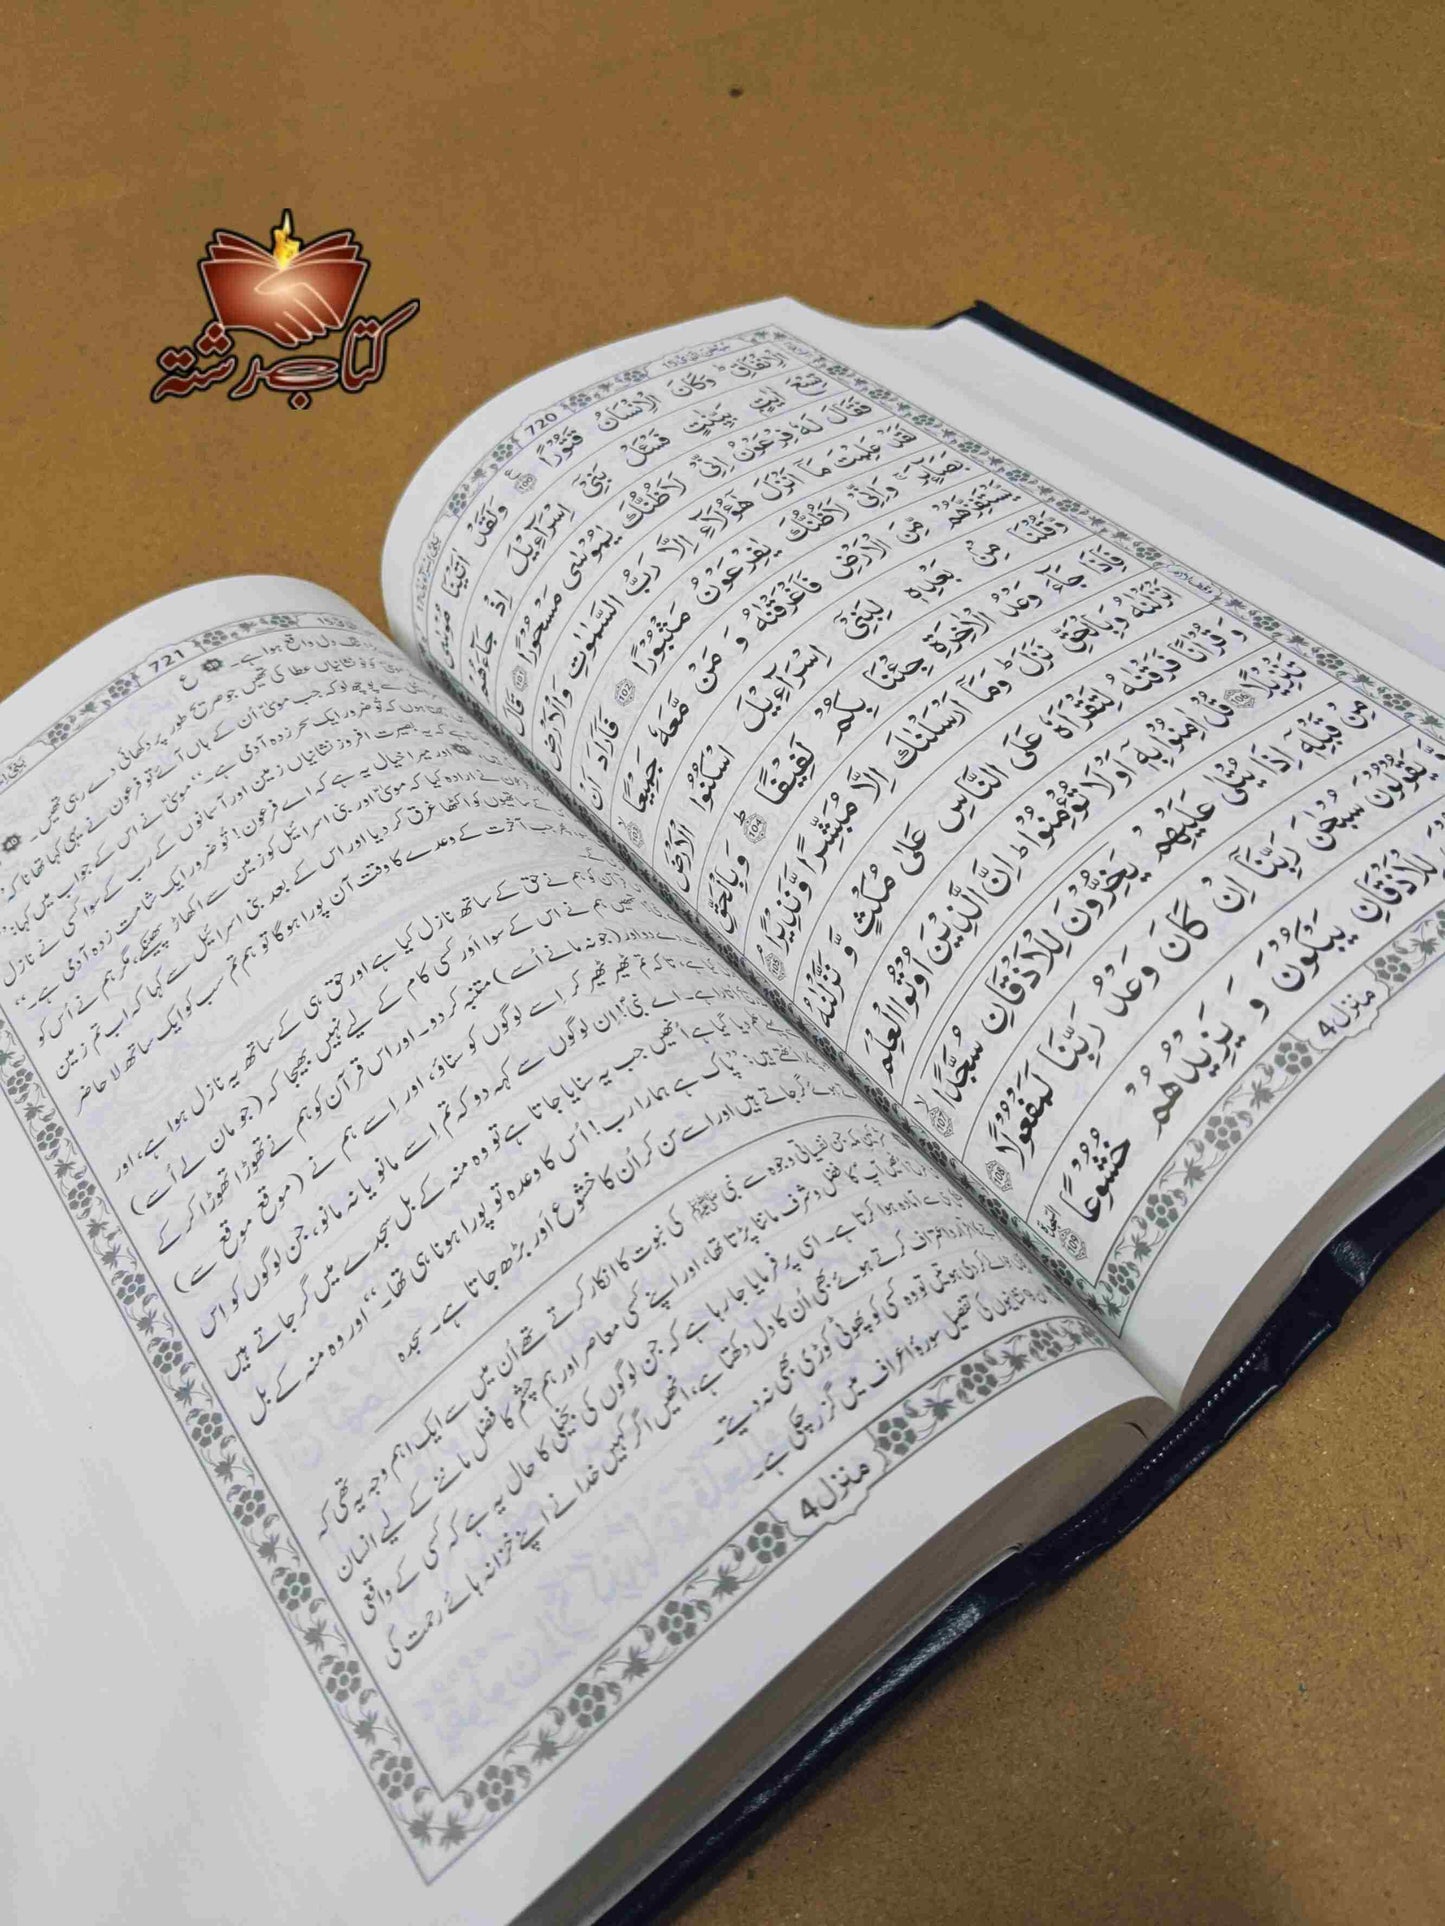 کتاب رشتہ
720
الْاِنْفَاقِ ؕ وَكَانَ الْاِنْسَانُ قَتُوْرًا ﴿100﴾ وَلَقَدْ اٰتَيْنَا مُوْسٰى
تِسْعَ اٰيٰتٍۭ بَيِّنٰتٍ فَسْـَٔلْ بَنِيْۤ اِسْرَآءِيْلَ اِذْ جَآءَهُمْ
فَقَالَ لَهٗ فِرْعَوْنُ اِنِّيْ لَاَظُنُّكَ يٰمُوْسٰى مَسْحُوْرًا ﴿101﴾ قَالَ
لَقَدْ عَلِمْتَ مَاۤ اَنْزَلَ هٰۤؤُلَآءِ اِلَّا رَبُّ السَّمٰوٰتِ وَالْاَرْضِ
بَصَآىِٕرَ ۚ وَاِنِّيْ لَاَظُنُّكَ يٰفِرْعَوْنُ مَثْبُوْرًا ﴿102﴾ فَاَرَادَ اَنْ
يَّسْتَفِزَّهُمْ مِّنَ الْاَرْضِ فَاَغْرَقْنٰهُ وَ مَنْ مَّعَهٗ جَمِيْعًا ﴿103﴾
وَّقُلْنَا مِنْۢ بَعْدِهٖ لِبَنِيْۤ اِسْرَآءِيْلَ اسْكُنُوا الْاَرْضَ
فَاِذَا جَآءَ وَعْدُ الْاٰخِرَةِ جِئْنَا بِكُمْ لَفِيْفًا ؕ ﴿104﴾ وَبِالْحَقِّ
اَنْزَلْنٰهُ وَبِالْحَقِّ نَزَلَ ؕ وَمَاۤ اَرْسَلْنٰكَ اِلَّا مُبَشِّرًا وَّنَذِيْرًا ﴿105﴾
وَ قُرْاٰنًا فَرَقْنٰهُ لِتَقْرَاَهٗ عَلَى النَّاسِ عَلٰى مُكْثٍ وَّ نَزَّلْنٰهُ
تَنْزِيْلًا ﴿106﴾ قُلْ اٰمِنُوْا بِهٖۤ اَوْ لَا تُؤْمِنُوْا ؕ اِنَّ الَّذِيْنَ اُوْتُوا الْعِلْمَ
مِنْ قَبْلِهٖۤ اِذَا يُتْلٰى عَلَيْهِمْ يَخِرُّوْنَ لِلْاَذْقَانِ سُجَّدًا ﴿107﴾
يَقُوْلُوْنَ سُبْحٰنَ رَبِّنَاۤ اِنْ كَانَ وَعْدُ رَبِّنَا لَمَفْعُوْلًا ﴿108﴾
لِلْاَذْقَانِ يَبْكُوْنَ وَ يَزِيْدُهُمْ خُشُوْعًا ﴿109﴾ السجدة
منزل 4
721
تنگ دل واقع ہوا ہے۔
موسیٰؑ کو نو نشانیاں عطا کی تھیں جو صریح طور پر دکھائی دے رہی تھیں۔
سے پوچھ لو کہ جب موسیٰؑ اُن کے ہاں آئے تو فرعون نے یہی کہا تھا نا کہ
ہوں کہ تُو ضرور ایک سحر زدہ آدمی ہے۔“ موسیٰؑ نے اس کے جواب میں کہا: ”
ہے کہ یہ بصیرت افروز نشانیاں زمین اور آسمانوں کے رب کے سوا کسی نے نازل
اور میرا خیال یہ ہے کہ اے فرعون! تُو ضرور ایک شامت زدہ آدمی ہے۔“
نے ارادہ کیا کہ موسیٰؑ اور بنی اسرائیل کو زمین سے اکھاڑ پھینکے، مگر ہم نے اُس کو
کے ساتھیوں کو اکٹھا غرق کر دیا اور اس کے بعد بنی اسرائیل سے کہا کہ اب تم زمین
جب آخرت کے وعدے کا وقت آن پورا ہوگا تو ہم تم سب کو ایک ساتھ لا حاضر
کو ہم نے حق کے ساتھ نازل کیا ہے اور حق ہی کے ساتھ یہ نازل ہوا ہے، اور
ہم نے اس کے سوا اور کسی کام کے لیے نہیں بھیجا کہ (جو مان لے اُسے)
دے دو اور (جو نہ مانے اُسے) متنبہ کر دو۔ اور اس قرآن کو ہم نے تھوڑا تھوڑا کر کے
کیا ہے، تاکہ تم ٹھیر ٹھیر کر اسے لوگوں کو سناؤ، اور اسے ہم نے (موقع موقع سے)
اُتارا ہے۔ اے نبیؐ! ان لوگوں سے کہہ دو کہ تم اِسے مانو یا نہ مانو، جن لوگوں کو اس
دیا گیا ہے اُنھیں جب یہ سنایا جاتا ہے تو وہ منہ کے بل سجدے میں گر جاتے ہیں
ہیں: ”پاک ہے ہمارا رب! اُس کا وعدہ تو پورا ہونا ہی تھا۔“ اور وہ منہ کے بل
ہوئے گر جاتے ہیں اور اسے سن کر اُن کا خشوع اور بڑھ جاتا ہے۔ سجدہ
کہ جن نفسیاتی وجوہ سے نبی ﷺ کی نبوت کا انکار کرتے تھے اُن میں سے ایک اہم وجہ یہ تھی کہ
آپ کا فضل و شرف ماننا پڑتا تھا، اور اپنے کسی معاصر اور ہم چشم کا فضل ماننے کے لیے انسان
سے آمادہ ہوا کرتا ہے۔ اسی پر فرمایا جا رہا ہے کہ جن لوگوں کی بخیلی کا حال یہ ہے کہ کسی کے واقعی
اعتراف کرتے ہوئے بھی اُن کا دل دکھتا ہے، انھیں اگر کہیں خدا نے اپنے خزانہ ہائے رحمت کی
حوالے کر دی ہوتیں تو وہ کسی کو پھوٹی کوڑی بھی نہ دیتے۔
نشانیوں کی تفصیل سورۂ اعراف میں گزر چکی ہے۔
منزل 4